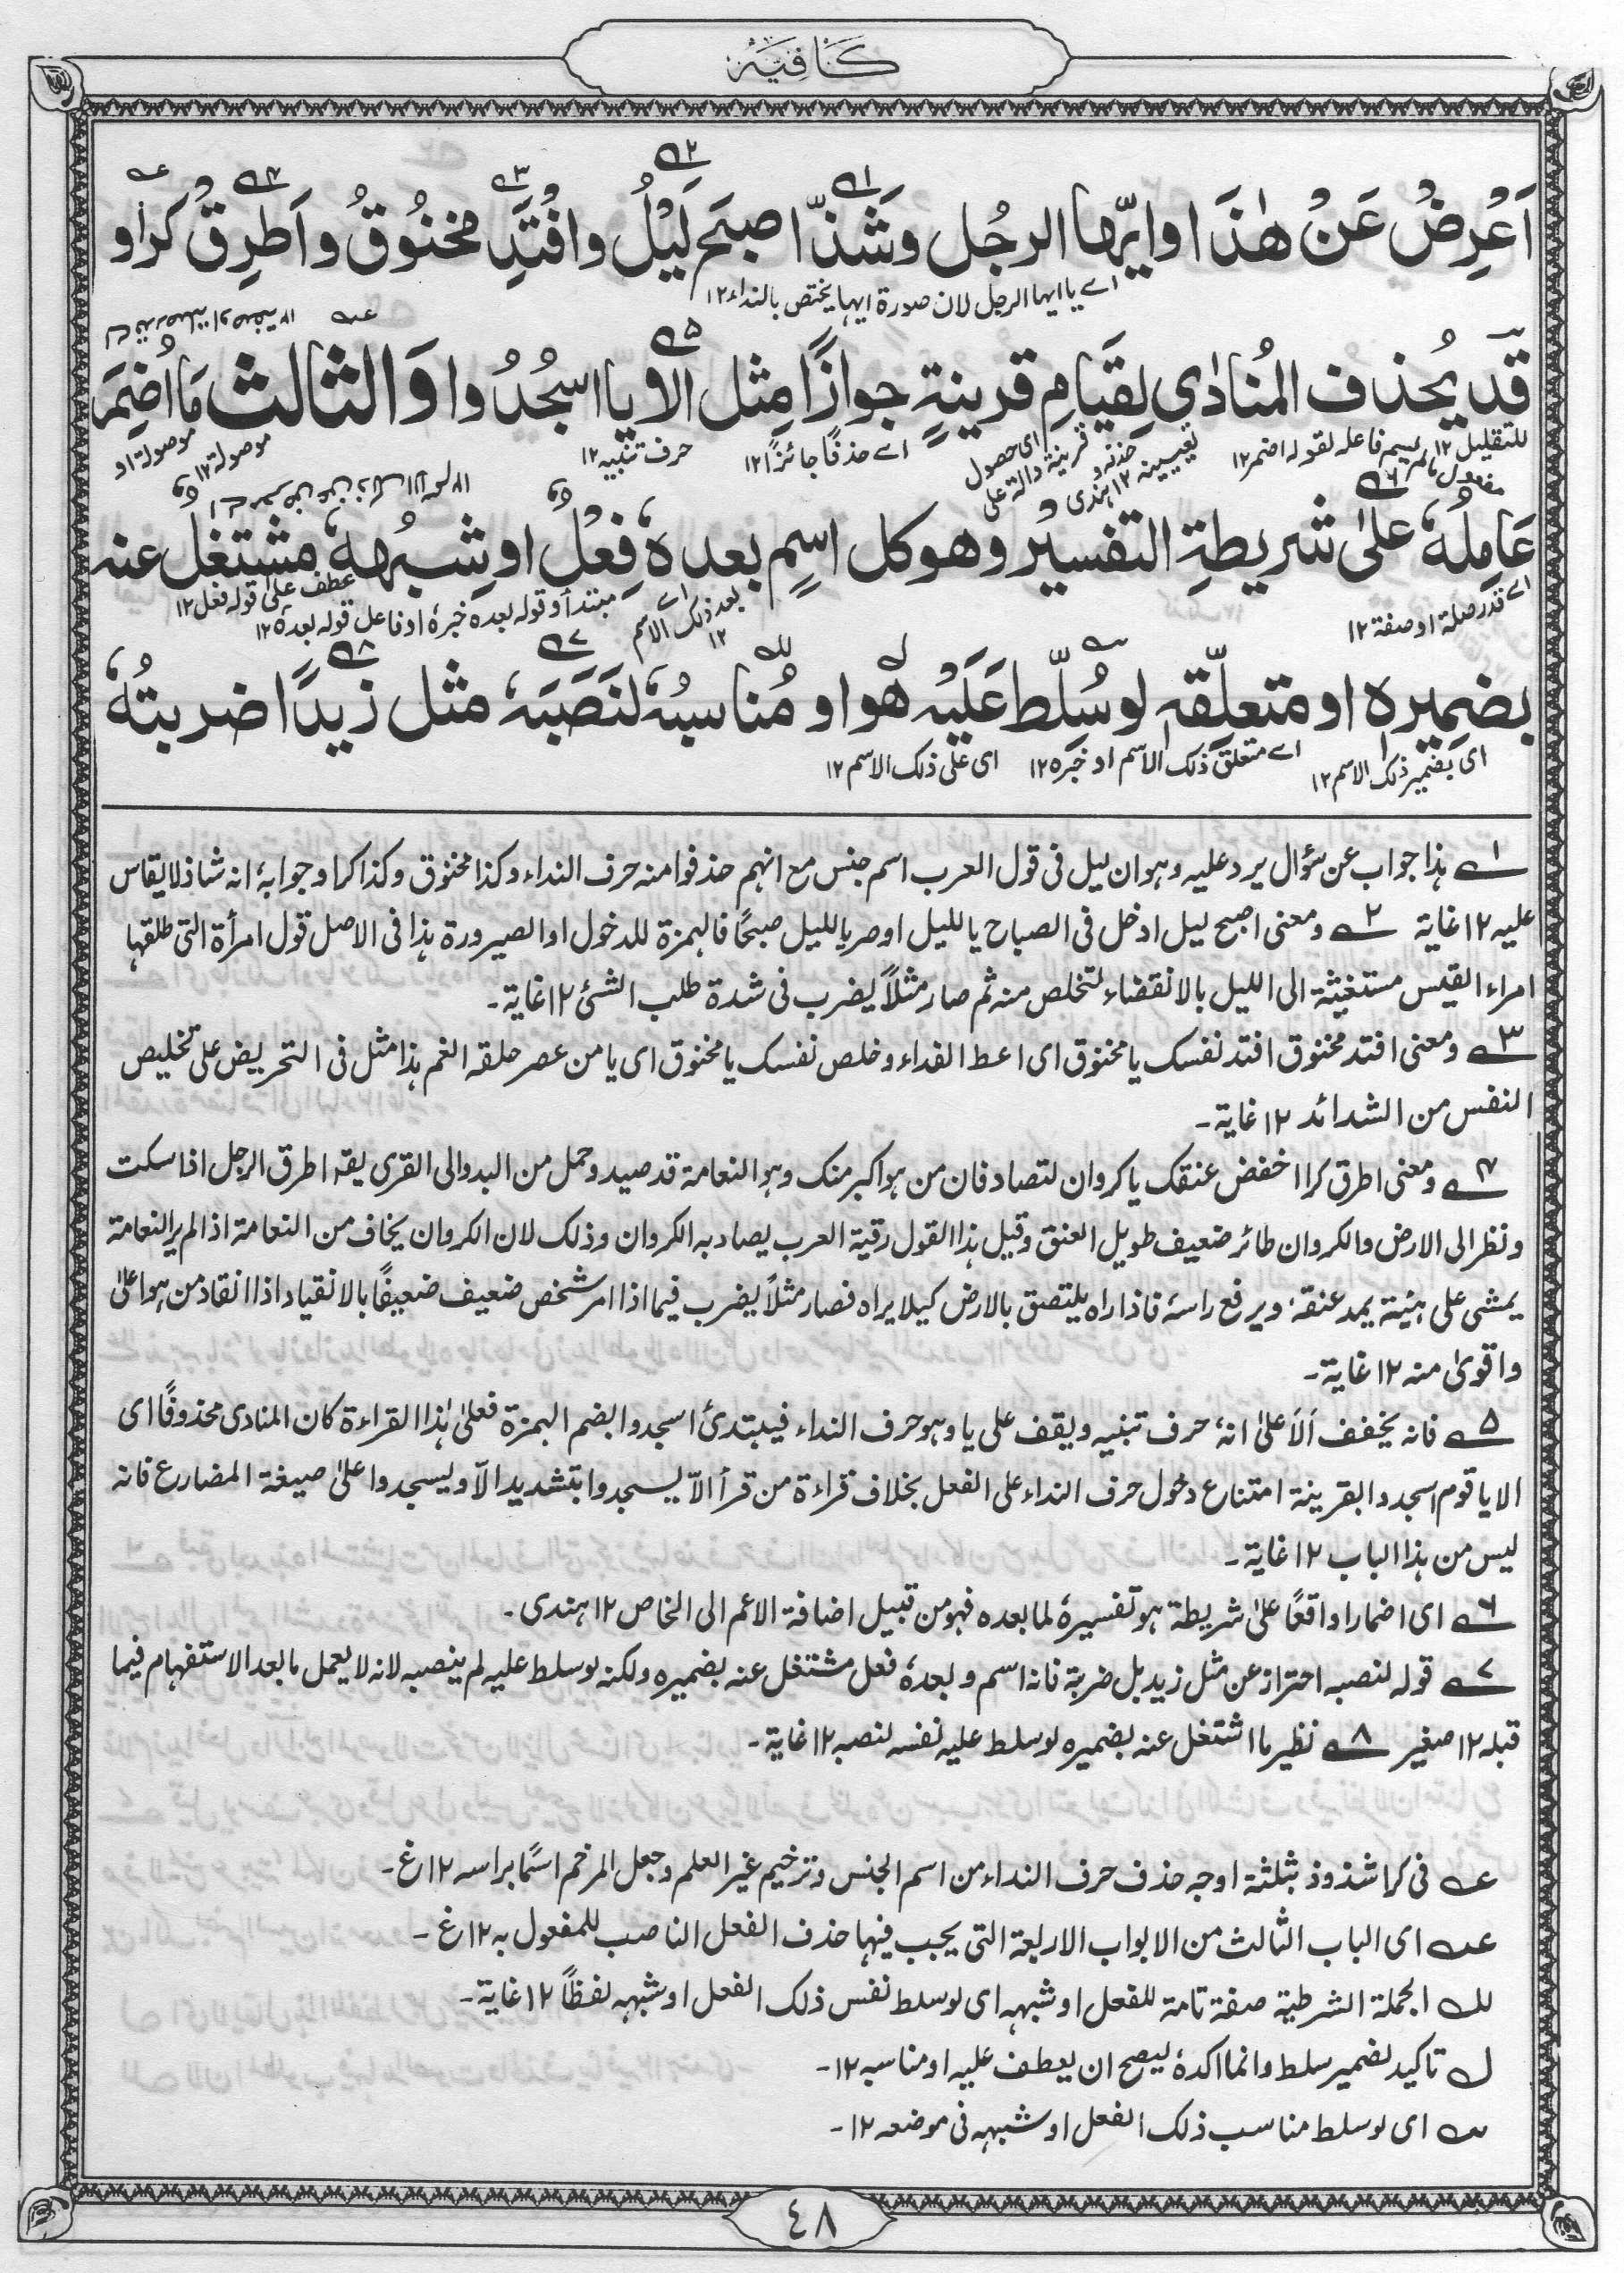 كَافِيَة
اَعْرِضْ عَنْ هٰذَا وايّها الرجُل وَشَذّ اصبَح لَيْلُ وافْتَدِ مخنُوقُ واَطرِقْ كَرَا و
اے یا ایها الرجل لان صورة ایها یختص بالنداء ١٢
قَد يُحذفُ المُنادٰى لِقيَامِ قرينةٍ جوازًا مِثل اَلَا يا اسجُدُوا وَالثالث مَا اُضمِرَ
للتقليل ١٢ مفعول مالم يسم فاعله لقوله اضمر ١٢ ای حصول قرينة دالة على تعيينه ١٢ هندى اے حذفًا جائزًا ١٢ حرف تنبيه ١٢ موصولة ١٢ موصولة او
عَامِلُهٗ علىٰ شريطةِ التفسيرِ وهو كل اسمٍ بعدهٗ فِعْلٌ او شِبهُهٗ مشتغل عنه
اے قدر صلة او صفة ١٢ اے بعد ذلك الاسم ١٢ مبتدأ وقوله بعده خبرهٗ او فاعل قوله بعده ١٢ عطف على قوله فعل ١٢
بضميرهٖ او متعلِّقهٖ لو سُلِّط عَلَيْهِ هُو او مُناسبُهٗ لنَصَبَهٗ مثل زيدًا ضربتُهٗ
ای بضمير ذلك الاسم ١٢ اے متعلق ذلك الاسم او خبره ١٢ ای على ذلك الاسم ١٢
١ے هذا جواب عن سؤال يرد عليه وهو ان ليل فى قول العرب اسم جنس مع انهم حذفوا منه حرف النداء وكذا مخنوق وكذا كرا وجوابهٗ انه شاذ لا يقاس
عليه ١٢ غاية ٢ے ومعنى اصبح ليل ادخل فى الصباح يا ليل او صر يا ليل صبحًا فالهمزة للدخول او الصيرورة هذا فى الاصل قول امرأة التى طلقها
امراء القيس مستغيثة الى الليل بالانقضاء لتخلص منه ثم صار مثلاً يضرب فى شدة طلب الشئ ١٢ غاية۔
٣ے ومعنى افتد مخنوق افتد نفسك يا مخنوق اى اعط الفداء وخلص نفسك يا مخنوق اى يا من عصر حلقه الغم هذا مثل فى التحريض على تخليص
النفس من الشدائد ١٢ غاية۔
٤ے ومعنى اطرق كرا اخفض عنقك يا كروان لتصاد فان من هو اكبر منك وهو النعامة قد صيد وحمل من البدو الى القرى يقه اطرق الرجل اذا سكت
ونظر الى الارض والكروان طائر ضعيف طويل العنق وقيل هذا القول رقية العرب يصاد به الكروان وذلك لان الكروان يخاف من النعامة اذا لم ير النعامة
يمشى على هيئة يمد عنقهٗ ويرفع راسهٗ فاذا راه يلتصق بالارض كيلا يراه فصار مثلاً يضرب فيما اذا امر شخص ضعيف ضعيفًا بالانقياد اذا انقاد من هو اعلىٰ
واقوىٰ منه ١٢ غاية۔
٥ے فانه يخفف اَلَا علىٰ انهٗ حرف تنبيه ويقف على يا وهو حرف النداء فيبتدئ اسجدوا بضم الهمزة فعلىٰ هٰذا القراءة كان المنادى محذوفًا اى
الا يا قوم اسجدوا بقرينة امتناع دخول حرف النداء على الفعل بخلاف قراءة من قرأ الاّ يسجدوا بتشديد الاّ ويسجدوا علىٰ صيغة المضارع فانه
ليس من هذا الباب ١٢ غاية۔
٦ے اى اضمارا واقعًا علىٰ شريطة هو تفسيرهٗ لما بعده فهو من قبيل اضافة الاعم الى الخاص ١٢ هندى۔
٧ے قوله لنصبه احتراز عن مثل زيد بل ضربة فانه اسم وبعدهٗ فعل مشتغل عنه بضميره ولكنه لو سلط عليه لم ينصبه لانه لا يعمل ما بعد الاستفهام فيما
قبله ١٢ صغير ٨ے نظير ما اشتغل عنه بضميره لو سلط عليه نفسه لنصبه ١٢ غاية۔
عہ فى كرا شذوذ بثلثة اوجه حذف حرف النداء من اسم الجنس وترخيم غير العلم وجعل المرخم اسمًا براسه ١٢ غ۔
عہ اى الباب الثالث من الابواب الاربعة التى يجب فيها حذف الفعل الناصب للمفعول به ١٢ غ۔
لله الجملة الشرطية صفة تامة للفعل او شبهه اى لو سلط نفس ذلك الفعل او شبهه لفظًا ١٢ غاية۔
ل تاكيد لضمير سلط وانما اكدهٗ ليصح ان يعطف عليه او مناسبه ١٢۔
سہ اى لو سلط مناسب ذلك الفعل او شبهه فى موضعه ١٢۔
٤٨